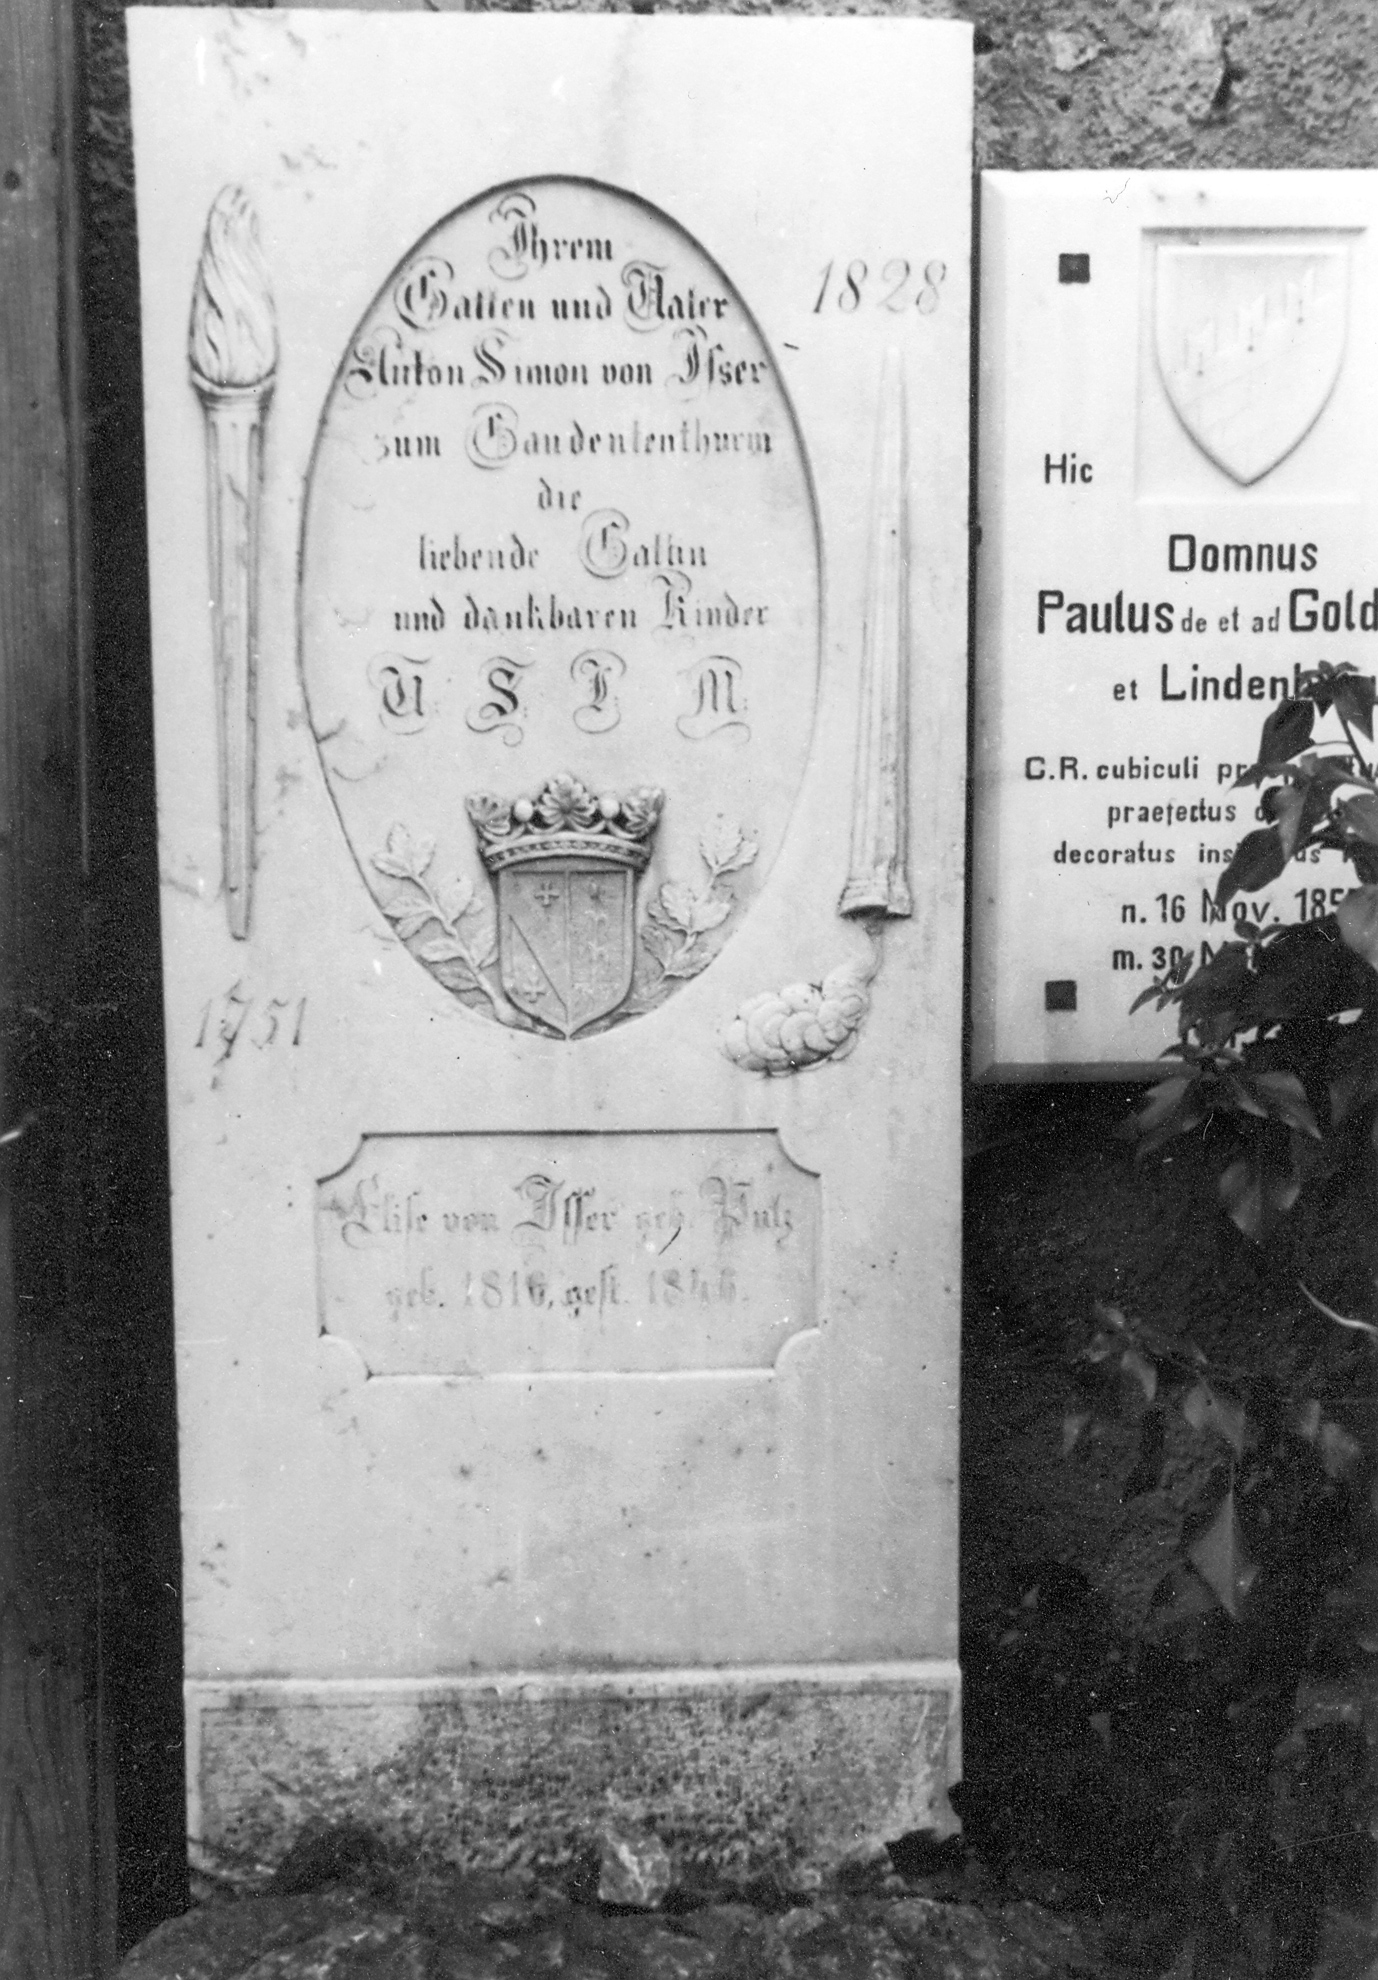 Ihrem
Gatten und Vater
Anton Simon von Isser
zum Gaudententhurm
die
liebende Gattin
und dankbaren Kinder
1828
1751
Elise von Isser geb.
geb. 1816, gest. 1846.
Hic
Domnus
Paulus de et ad Gold
et
C.R. cubiculi
praefectus
decoratus
n. 16 Nov.
m. 30